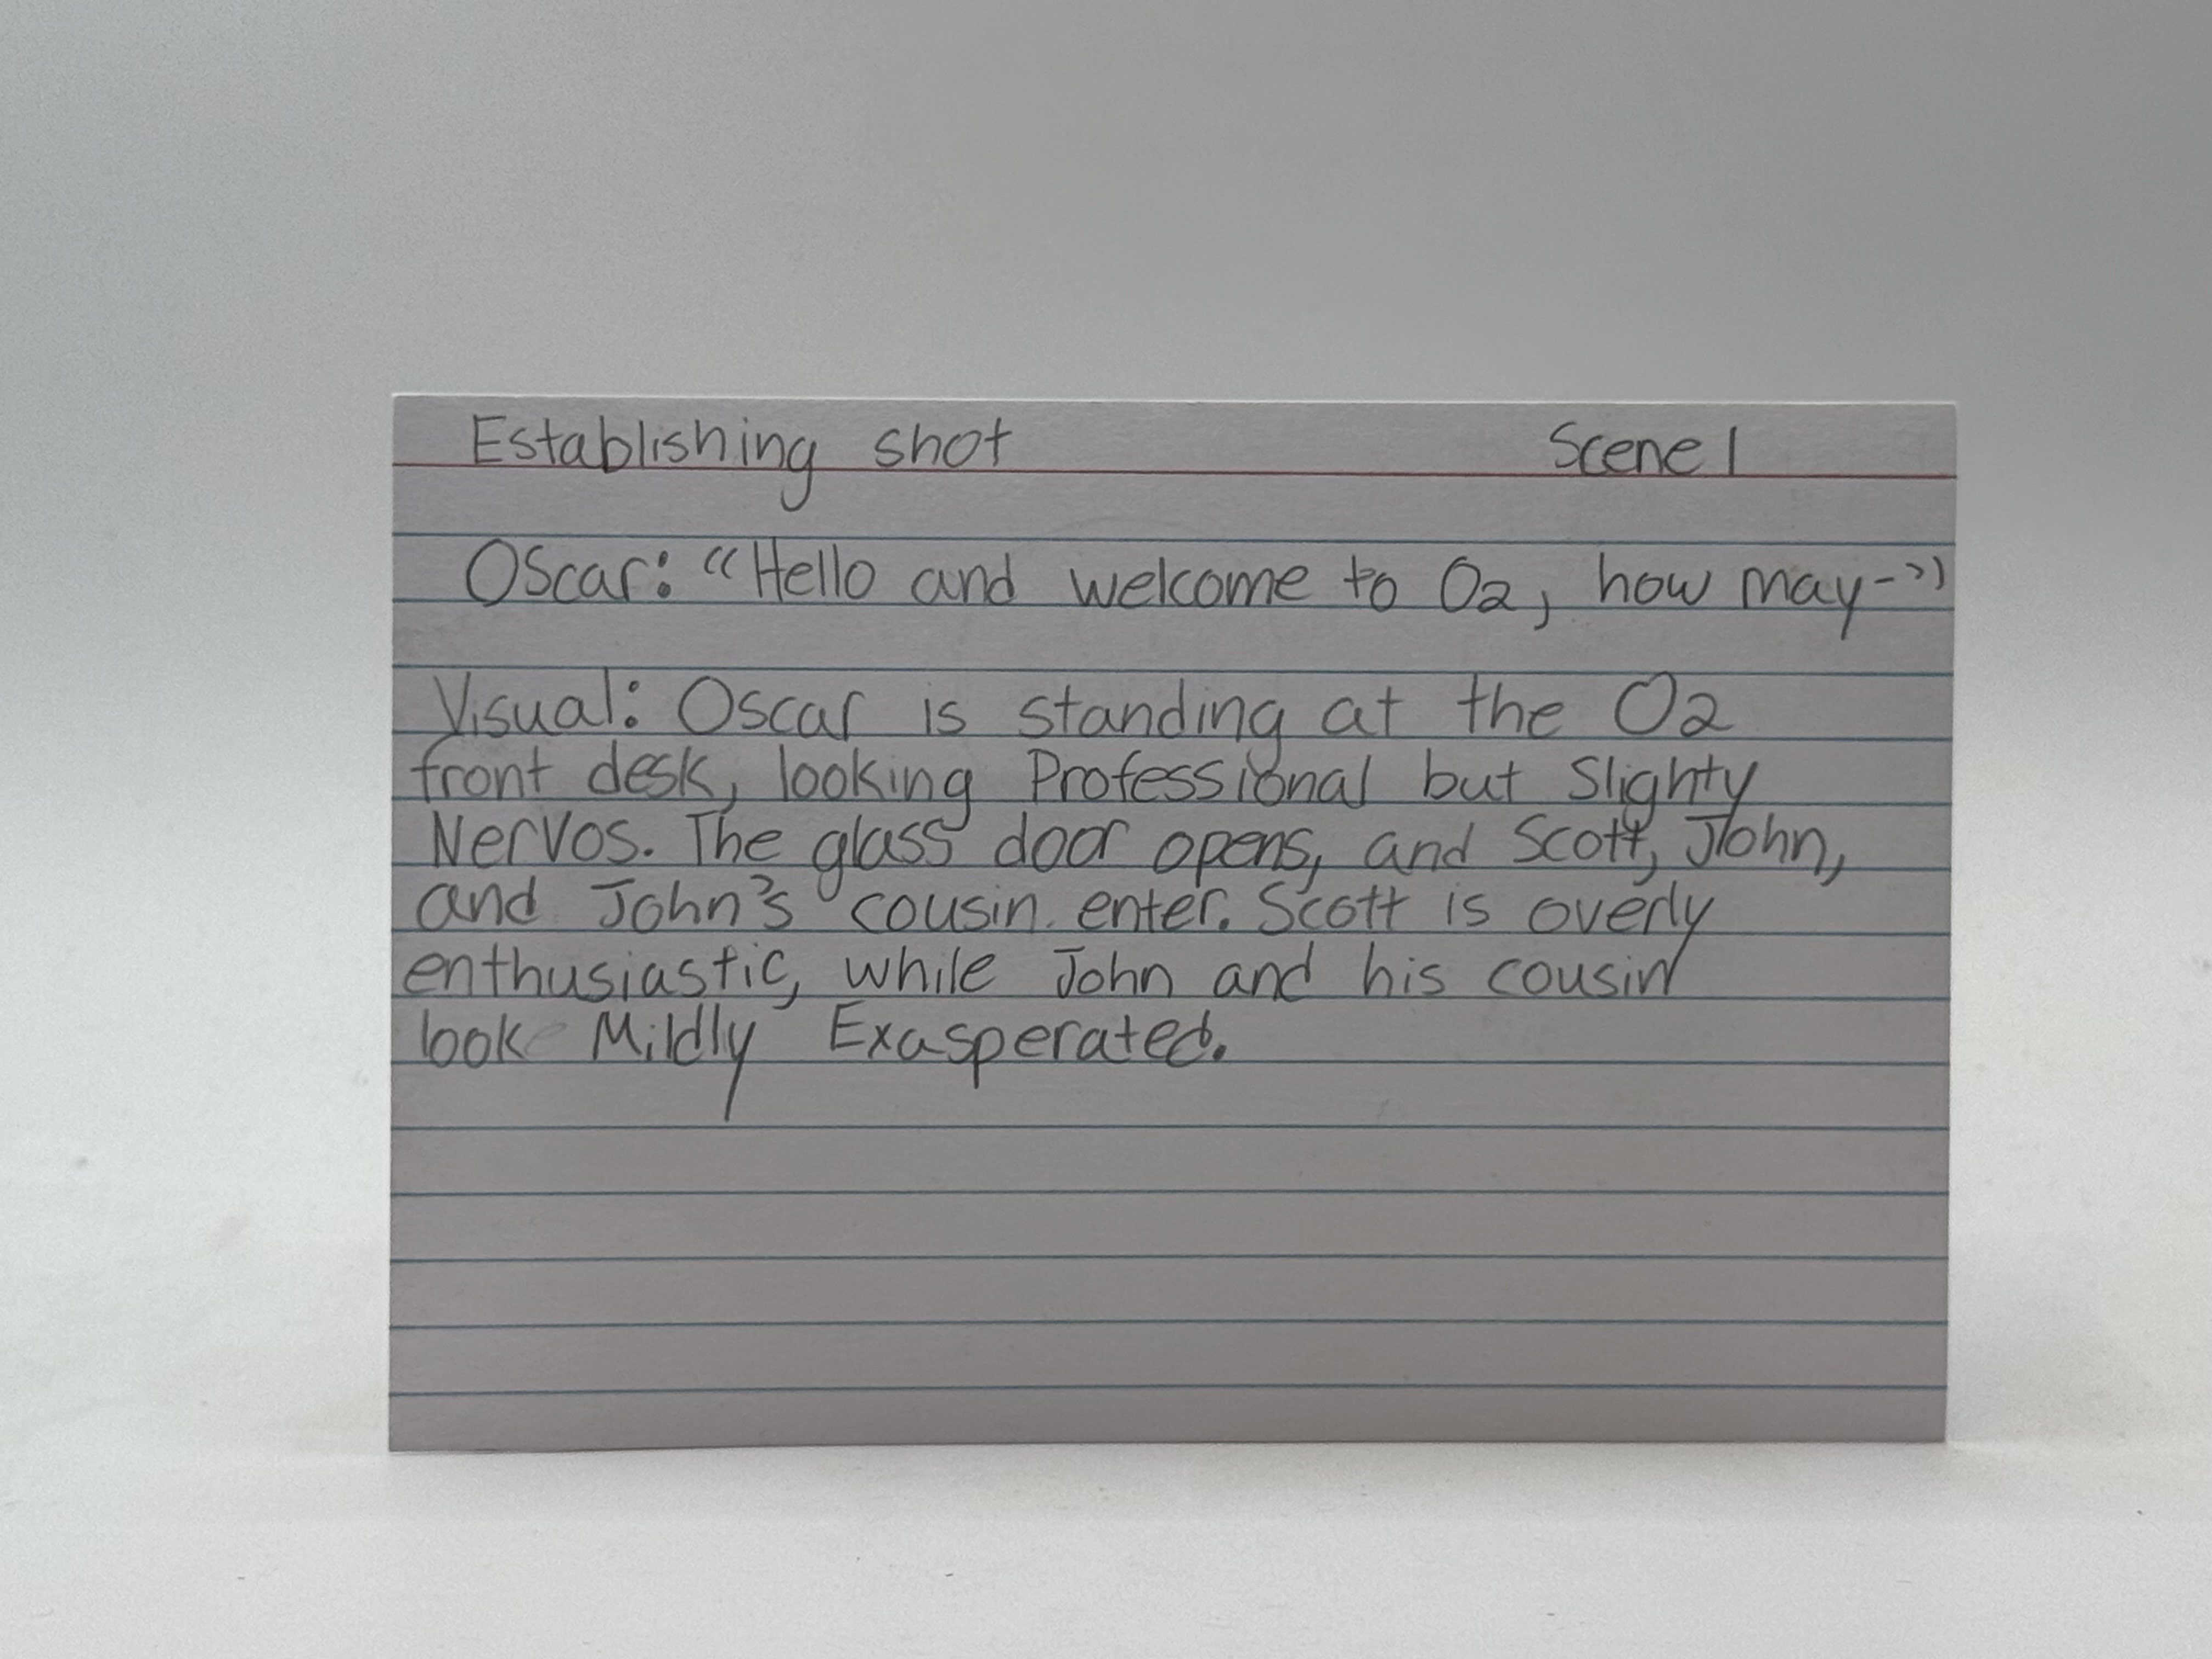 Establishing shot Scene 1
Oscar: "Hello and welcome to O2, how may-"
Visual: Oscar is standing at the O2
front desk, looking Professional but Slighty
Nervos. The glass door opens, and Scott, John,
and John's cousin enter. Scott is overly
enthusiastic, while John and his cousin
look Mildly Exasperated.